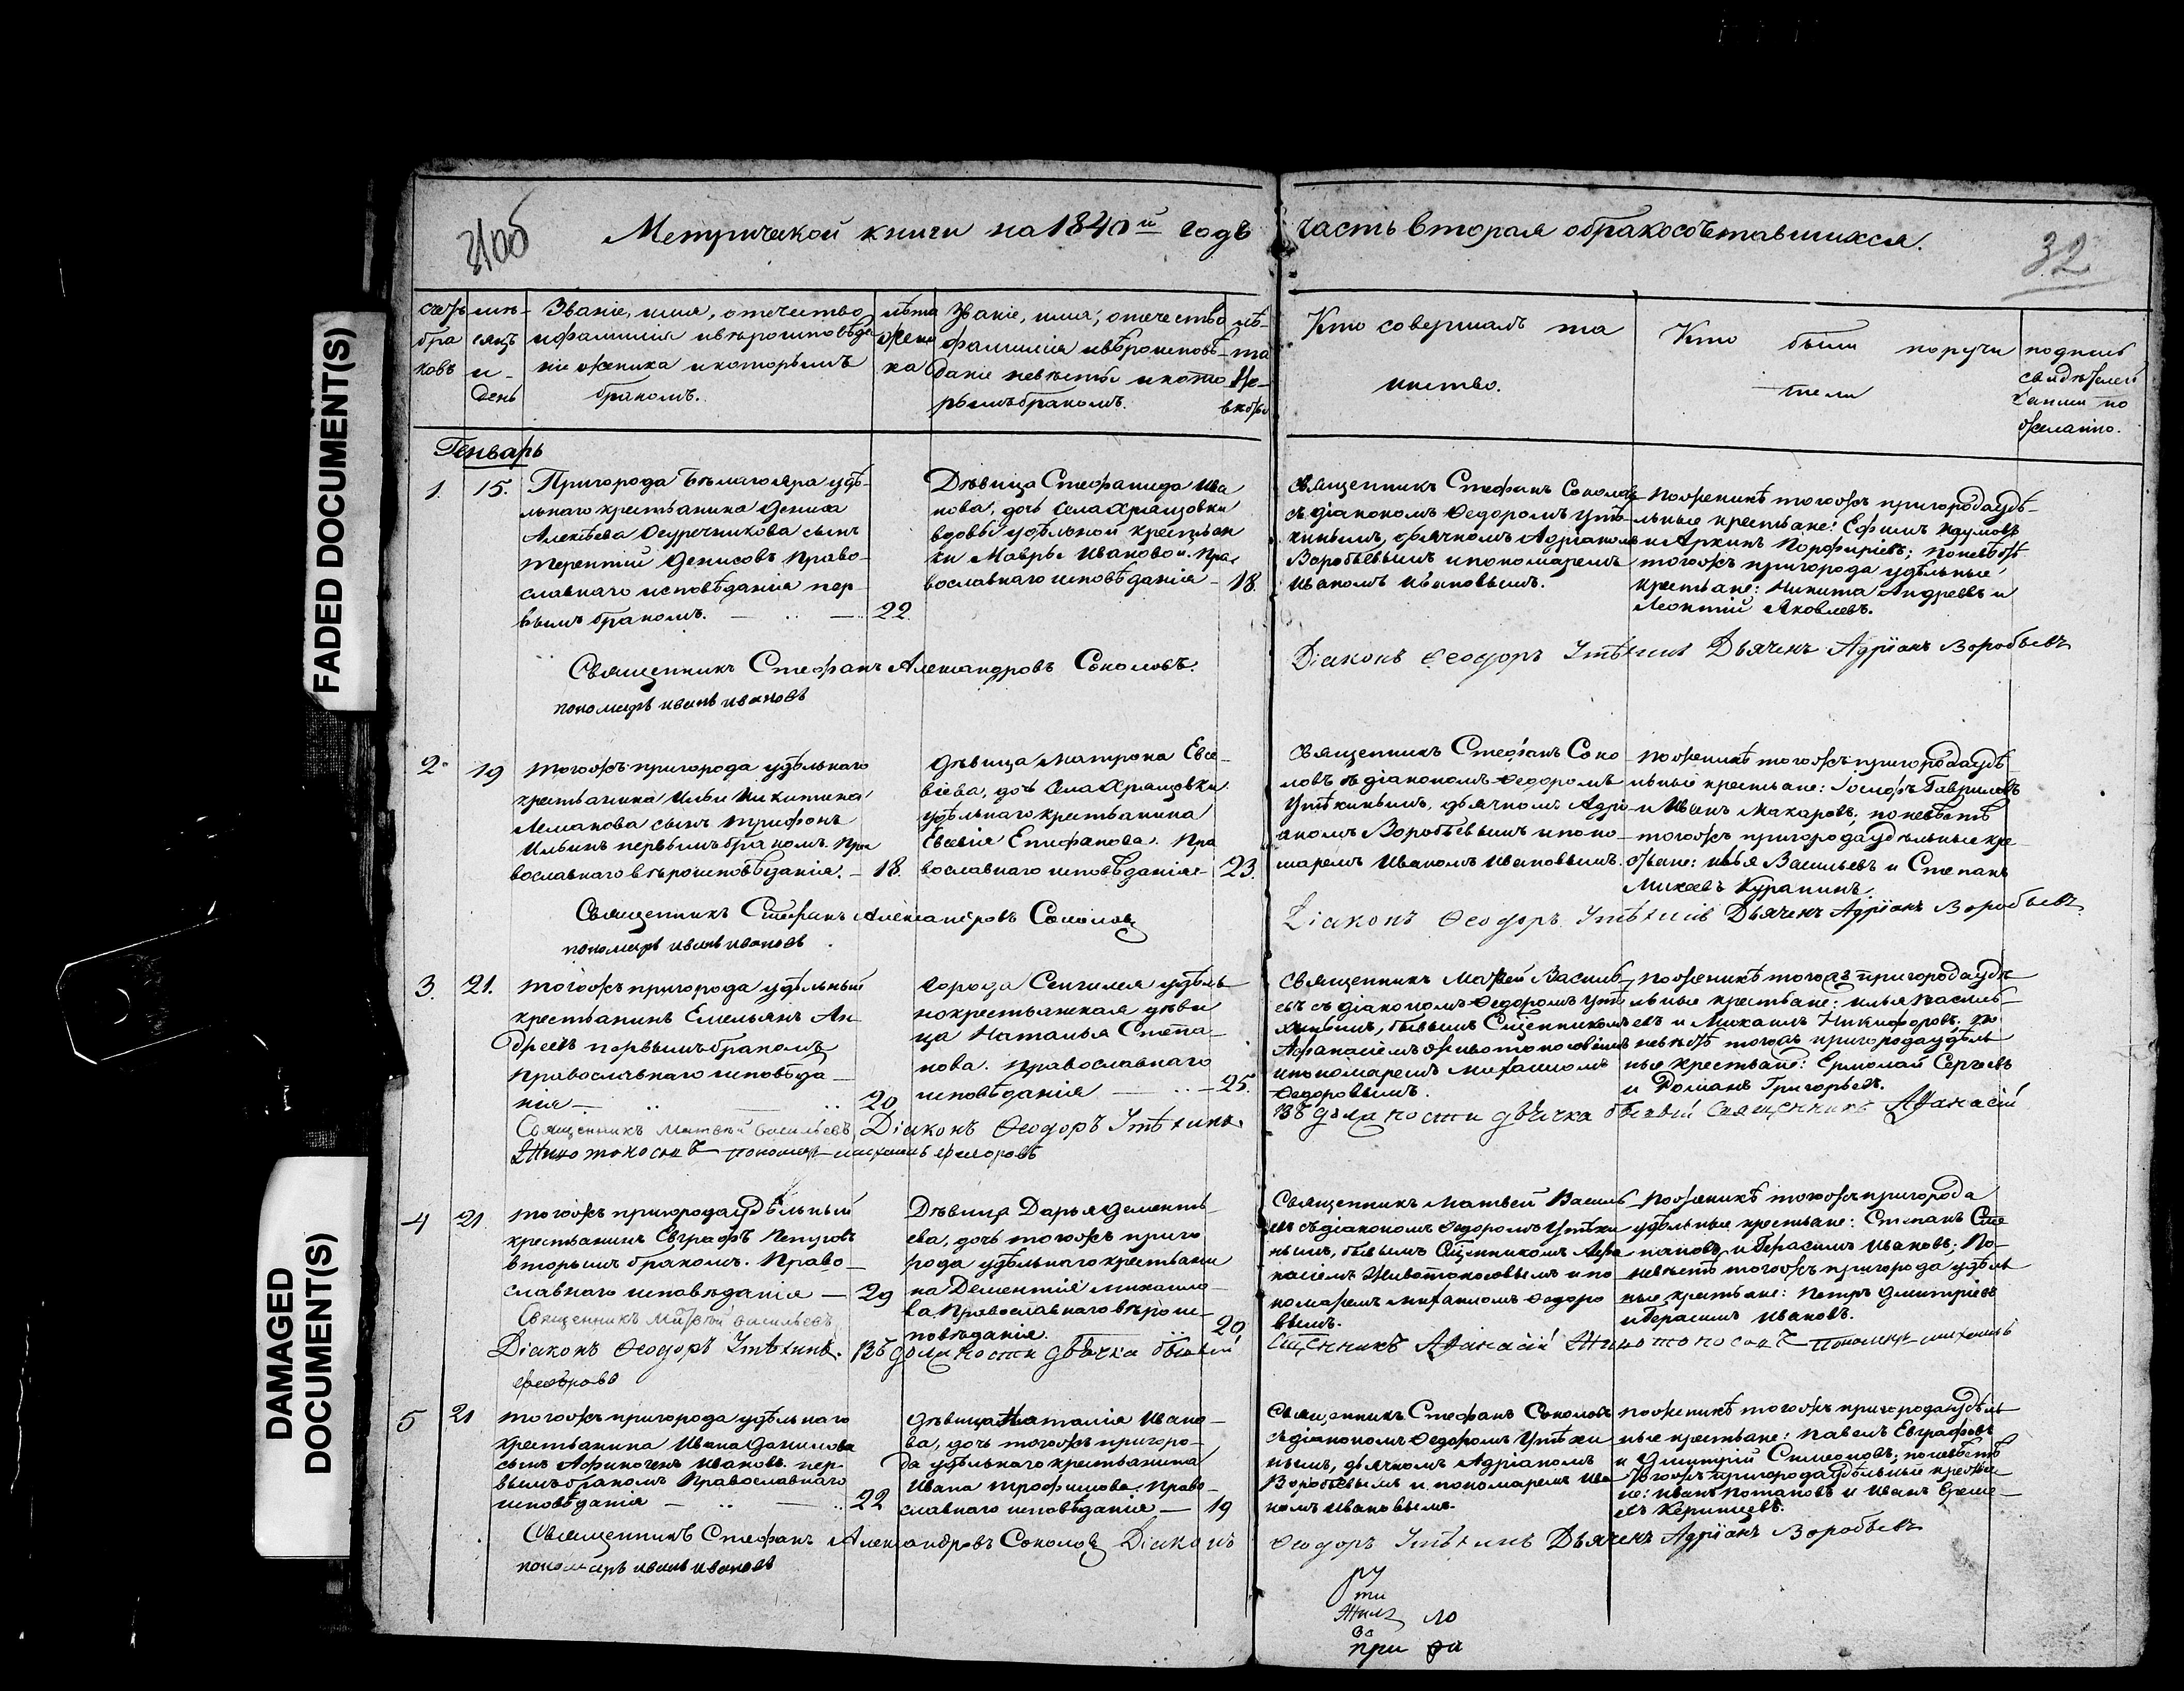 FADED DOCUMENT(S)
DAMAGED
DOCUMENT(S)
Метрической книги на 1840й годъ часть вторая обракосочетавшихся.
32
счетъ
бра
ковъ
мѣ-
сяцъ
и-
день
Званіе, имя, отечество
ифамилія ивѣроисповѣда
ніе жениха икоторымъ
бракомъ.
лѣта
жени
ха
Званіе, имя, отечество
фамилія ивѣроисповѣ-
даніе невѣсты икото
рымъ бракомъ.
лѣ-
та
Не-
вѣсты
Кто совершалъ та
инство.
Кто были поручи
тели
подпись
свидѣтелей
записи по
желанію.
Генварь
1. 15.
Пригорода Бѣлагояра удѣ-
льнаго крестьянина Дениса
Алексѣева Огуречникова сынъ
Терентій Денисовъ Право-
славнаго исповѣданія пер-
вымъ бракомъ. 22.
Дѣвица Стефанида Ива
нова, дочь села Хрящовки
вдовы удѣльной крестьян
ки Мавры Ивановой. Пра
вославнаго исповѣданія - 18.
Священникъ Стефанъ Соколовъ
съ діакономъ Федоромъ Утѣ-
хинымъ, дьячкомъ Адріаномъ
Воробьевымъ и пономаремъ
Иваномъ Ивановымъ.
поженихѣ тогожъ пригорода удѣ-
льные крестьяне: Ефимъ Наумовъ
и Аркипъ Порфиріевъ; по невѣстѣ
тогожъ пригорода удѣльные
крестьяне: Никита Андреевъ и
Леонтій Яковлевъ.
Священникъ Стефанъ Александровъ Соколовъ.
Діаконъ Феодоръ Утѣхинъ Дьячекъ Адріанъ Воробьевъ
пономарь Иванъ Ивановъ
2. 19
тогожъ пригорода удѣльнаго
крестьянина Ильи Никитина
Лемаева сынъ Трифонъ
Ильинъ первымъ бракомъ. Пра
вославнаго вѣроисповѣданія. - 18.
Дѣвица Матрона Евсе-
віева, дочь села Хрящовки
удѣльнаго крестьянина
Евсевія Епифанова. Пра
вославнаго исповѣданія - 23.
Священникъ Стефанъ Соко
ловъ съ діакономъ Федоромъ
Утѣхинымъ, дьячкомъ Адрі
аномъ Воробьевымъ и поно
маремъ Иваномъ Ивановымъ.
поженихѣ тогожъ пригорода удѣ
льные крестьяне: Іосифъ Гавриловъ
и Иванъ Макаровъ; по невѣстѣ
тогожъ пригорода удѣльные кре
стьяне: Илья Васильевъ и Степанъ
Михеевъ Курапинъ.
Священникъ Стефанъ Александровъ Соколовъ
Діаконъ Феодоръ Утѣхинъ Дьячекъ Адріанъ Воробьевъ.
пономарь Иванъ Ивановъ.
3. 21.
тогожъ пригорода удѣльный
крестьянинъ Емельянъ Ан-
дреевъ первымъ бракомъ
Православнаго исповѣда-
нія - 20
города Сенгилея удѣль-
нокрестьянская дѣви
ца Наталья Степа-
нова. Православнаго
исповѣданія - 25.
Священникъ Матвей Василь-
евъ съ діакономъ Федоромъ Утѣ
хинымъ, бывшимъ Сщенникомъ
Афанасіемъ Животоносовымъ
и пономаремъ Михаиломъ
Федоровымъ.
поженихѣ тогожъ пригорода удѣ
льные крестьяне: Илья Василь-
евъ и Михаилъ Никифоровъ. по
невѣстѣ тогожъ пригорода удѣль
ные крестьяне: Ермолай Сергеевъ
и Романъ Григорьевъ.
Священникъ Матвей Васильевъ Діаконъ Феодоръ Утѣхинъ.
Въ должности дьячка бывый Священникъ Афанасій
Животоносовъ пономарь Михаилъ Федоровъ
4 21.
тогожъ пригорода удѣльный
крестьянинъ Евграфъ Петровъ
вторымъ бракомъ. Право-
славнаго исповѣданія - 29
Дѣвица Дарья Дементь
ева, дочь тогожъ приго
рода удѣльнаго крестьяни
на Дементія Михайло-
ва. Православнаго вѣроис-
повѣданія. 20
Священникъ Матвей Василь
евъ съ діакономъ Федоромъ Утѣхи
нымъ, бывшимъ Сщенникомъ Афа
насіемъ Животоносовымъ и по
номаремъ Михаиломъ Федоро
вымъ.
поженихѣ тогожъ пригорода
удѣльные крестьяне: Степанъ Сте
пановъ и Герасимъ Ивановъ; По-
невѣстѣ тогожъ пригорода удѣль
ные крестьяне: Петръ Дмитріевъ
и Герасимъ Ивановъ.
Священникъ Матвей Васильевъ
Діаконъ Феодоръ Утѣхинъ. Въ должности дьячка бывый
Сщенникъ Афанасій Животоносовъ пономарь Михаилъ
Федоровъ
5 21
тогожъ пригорода удѣльнаго
крестьянина Ивана Данилова
сынъ Афиногенъ Ивановъ. пер-
вымъ бракомъ Православнаго
исповѣданія - 22
Дѣвица Наталія Ивано-
ва, дочь тогожъ пригоро-
да удѣльнаго крестьянина
Ивана Трофимова. Право-
славнаго исповѣданія - 19
Священникъ Стефанъ Соколовъ
съ діакономъ Федоромъ Утѣхи
нымъ, дьячкомъ Адріаномъ
Воробьевымъ и пономаремъ Ива
номъ Ивановымъ.
поженихѣ тогожъ пригорода удѣль
ные крестьяне: Павелъ Евграфовъ
и Дмитрій Симеоновъ; по невѣстѣ
тогожъ пригорода удѣльные крестья
не: Иванъ Потаповъ и Иванъ Ереме-
евъ
Священникъ Стефанъ Александровъ Соколовъ Діаконъ
Феодоръ Утѣхинъ Дьячекъ Адріанъ Воробьевъ
пономарь Иванъ Ивановъ
ру
ти
ло
за
при